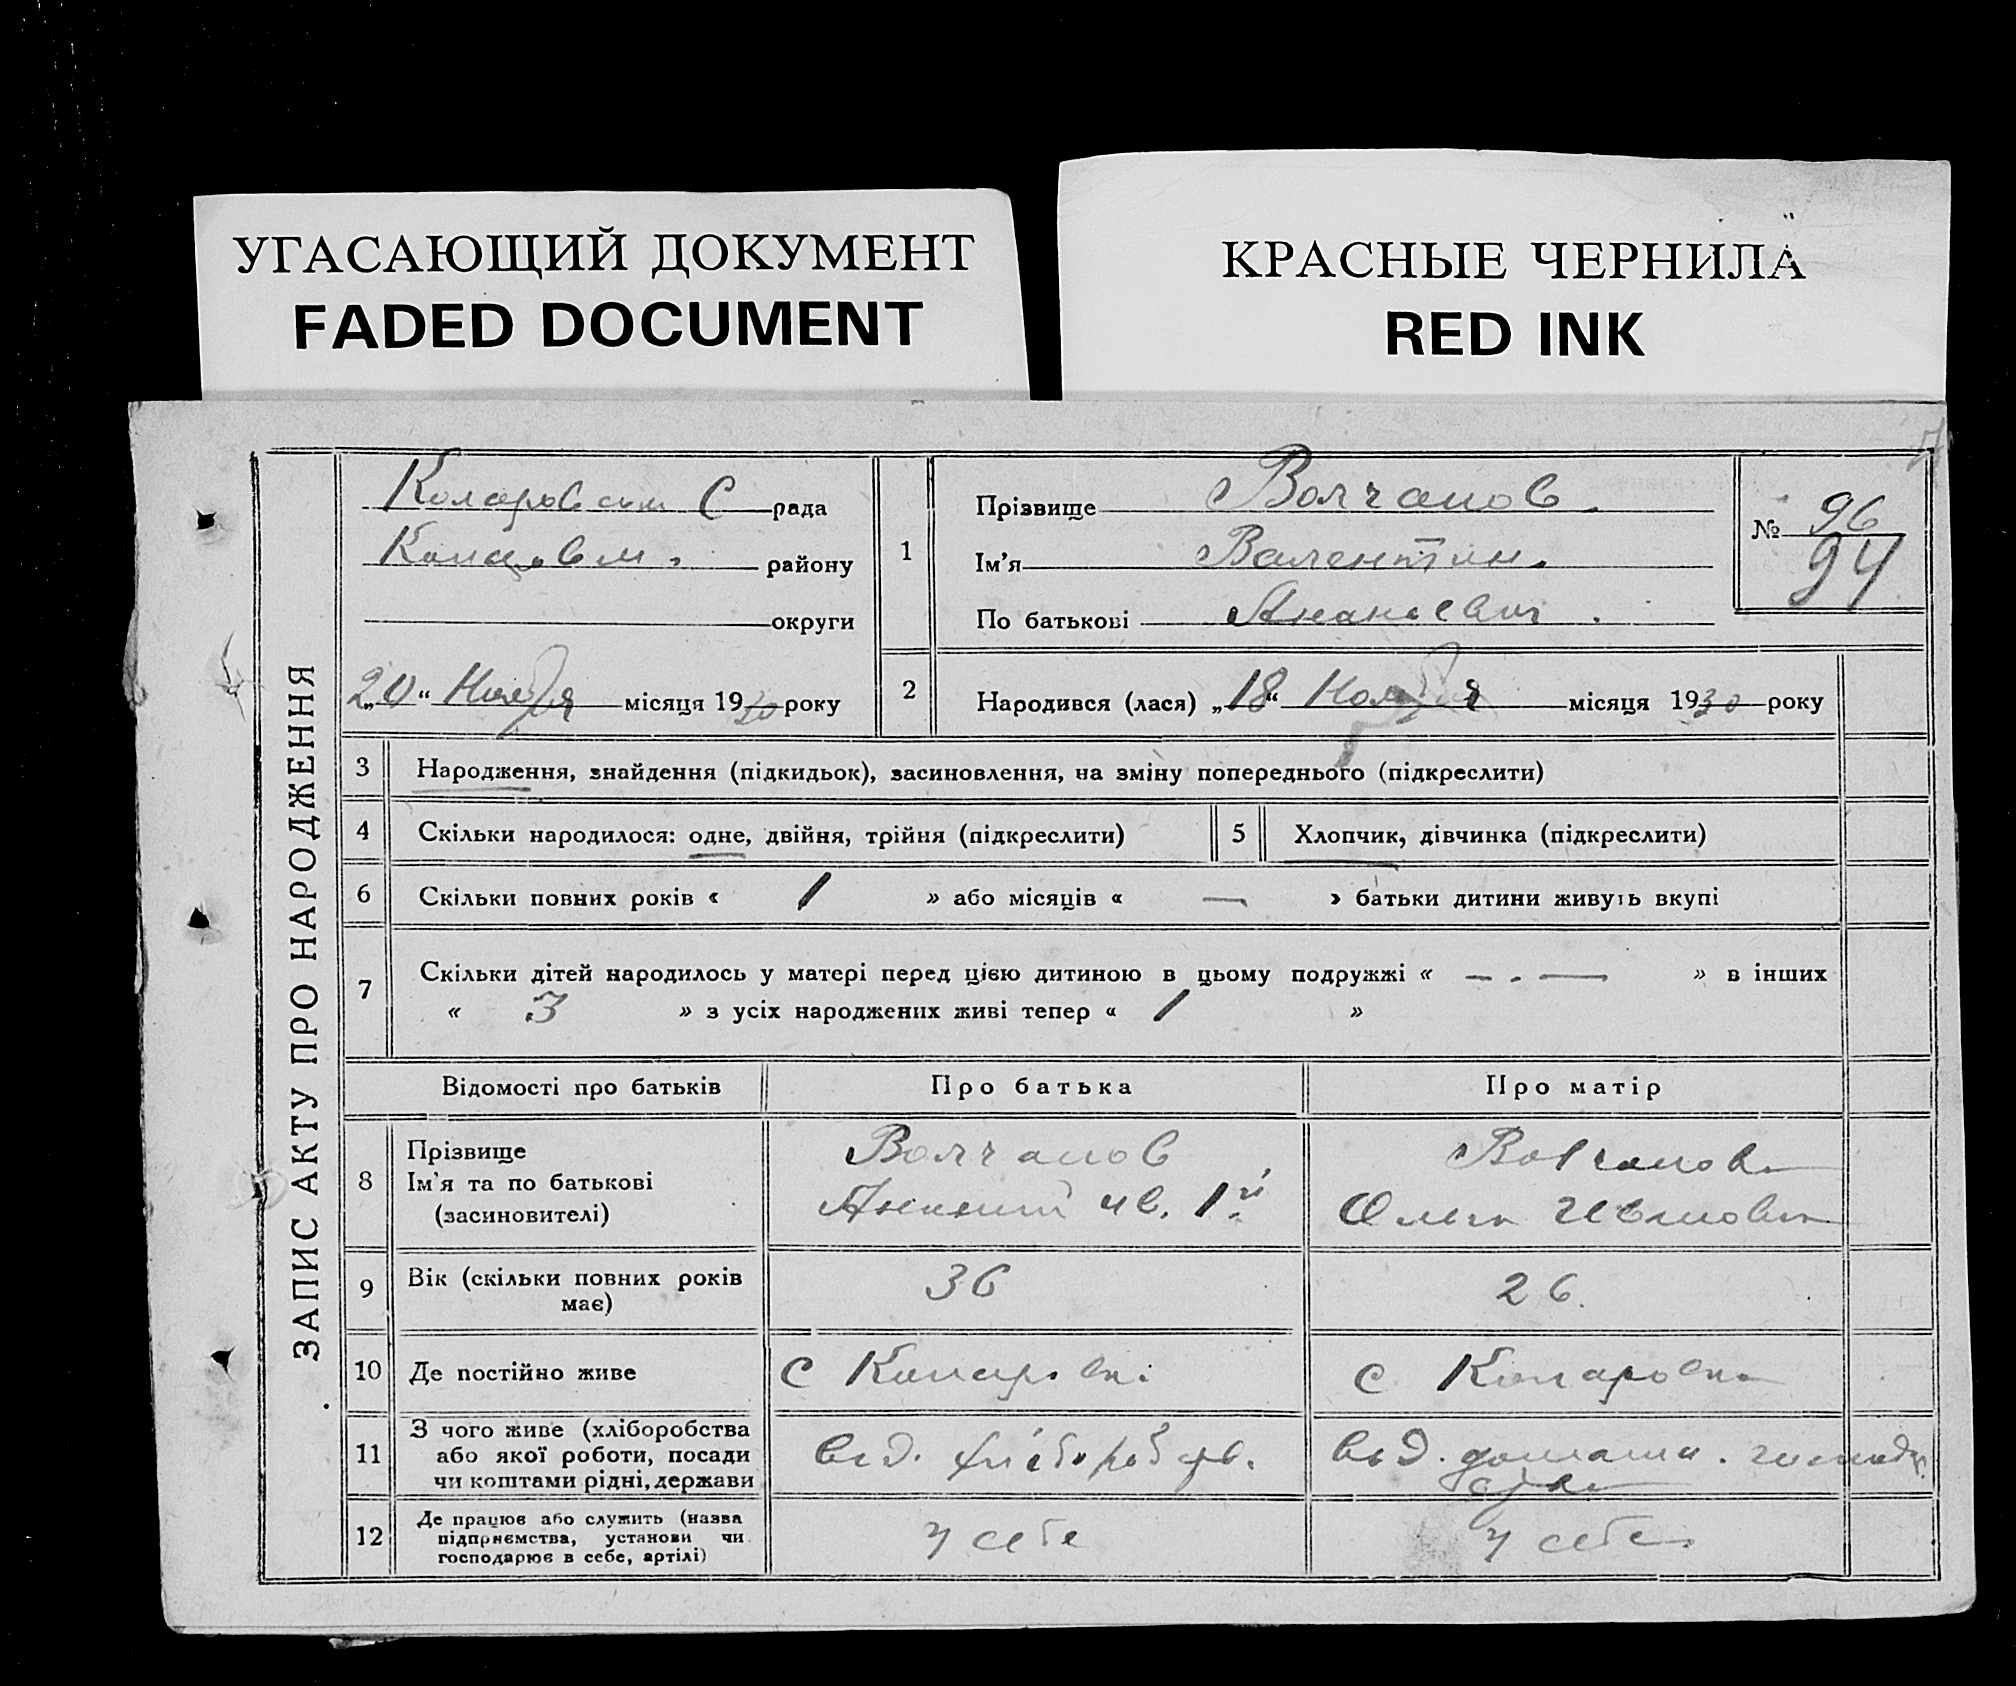 УГАСАЮЩИЙ ДОКУМЕНТ
FADED DOCUMENT
КРАСНЫЕ ЧЕРНИЛА
RED INK
ЗАПИС АКТУ ПРО НАРОДЖЕННЯ
С рада
району
округи
„20“ Ноября місяця 1930 року
1
Прізвище Волчанов
Ім'я Валентин.
По батькові Ананьевич
№ 96
94
2
Народився (лася) „18“ Ноября місяця 1930 року
3 Народження, знайдення (підкидьок), засиновлення, на зміну попереднього (підкреслити)
4 Скільки народилося: одне, двійня, трійня (підкреслити)
5 Хлопчик, дівчинка (підкреслити)
6 Скільки повних років « 1 » або місяців « — » батьки дитини живуть вкупі
7 Скільки дітей народилось у матері перед цією дитиною в цьому подружжі « — . — » в інших
« 3 » з усіх народжених живі тепер « 1 »
Відомості про батьків Про батька Про матір
8 Прізвище
Ім'я та по батькові
(засиновителі)
Волчанов
Ананий Ив. 1й
Волчанова
Ольга Ивановна
9 Вік (скільки повних років
має)
36
26.
10 Де постійно живе
с
с. Коларовка
11 З чого живе (хліборобства
або якої роботи, посади
чи коштами рідні, держави
від. хліборобств.
від. домашн.
12 Де працює або служить (назва
підприємства, установи чи
господарює в себе, артілі)
у себе
у себе